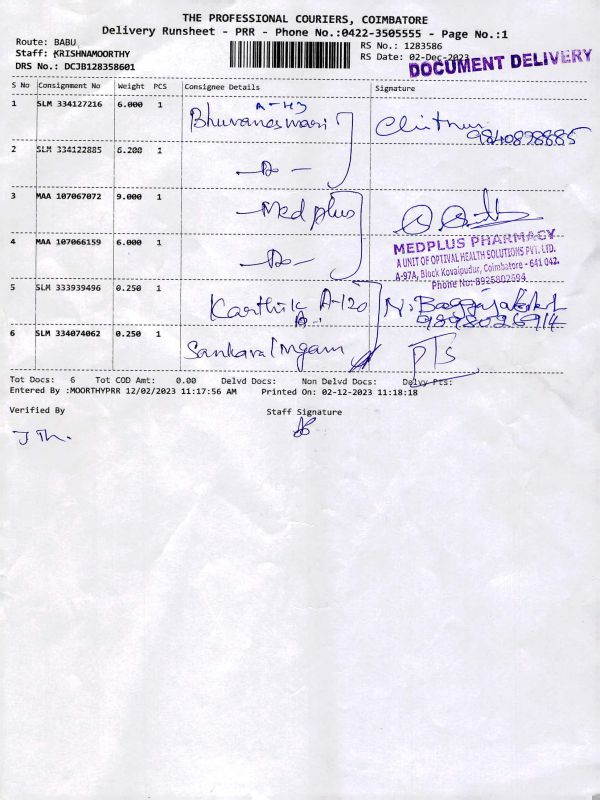 THE PROFESSIONAL COURIERS, COIMBATORE
Delivery Runsheet - PRR - Phone No.:0422-3505555 - Page No.:1
Route: BABU
Staff: KRISHNAMOORTHY
DRS No.: DCJB128358601
RS No.: 1283586
RS Date: 02-Dec-2023
DOCUMENT DELIVERY
S No Consignment No Weight PCS Consignee Details Signature
1 SLM 334127216 6.000 1 Bhuvaneswari
9840898885
2 SLM 334122885 6.200 1 -Do-
3 MAA 107067072 9.000 1 Medplus
4 MAA 107066159 6.000 1 -Do-
MEDPLUS PHARMACY
A UNIT OF OPTIVAL HEALTH SOLUTIONS PVT. LTD.
A-97A, Block Kovaipudur, Coimbatore - 641 042.
Phone No: 8925802694
5 SLM 333939496 0.250 1 Karthik A-120
6 SLM 334074062 0.250 1 Sankaralingam PTS
Tot Docs: 6 Tot COD Amt: 0.00 Delvd Docs: Non Delvd Docs: Delvy Pts:
Entered By :MOORTHYPRR 12/02/2023 11:17:56 AM Printed On: 02-12-2023 11:18:18
Verified By Staff Signature